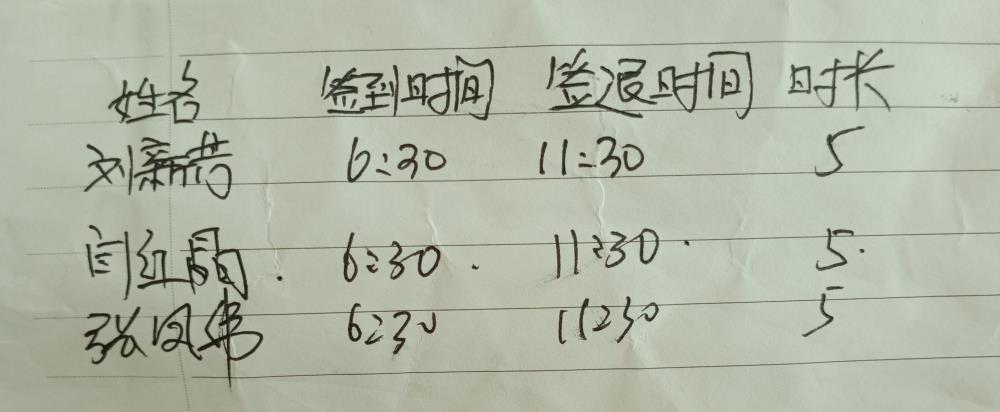 姓名 签到时间 签退时间 时长
刘新芳 6:30 11:30 5
闫红雨. 6:30. 11:30. 5.
张凤伟 6:30 11:30 5